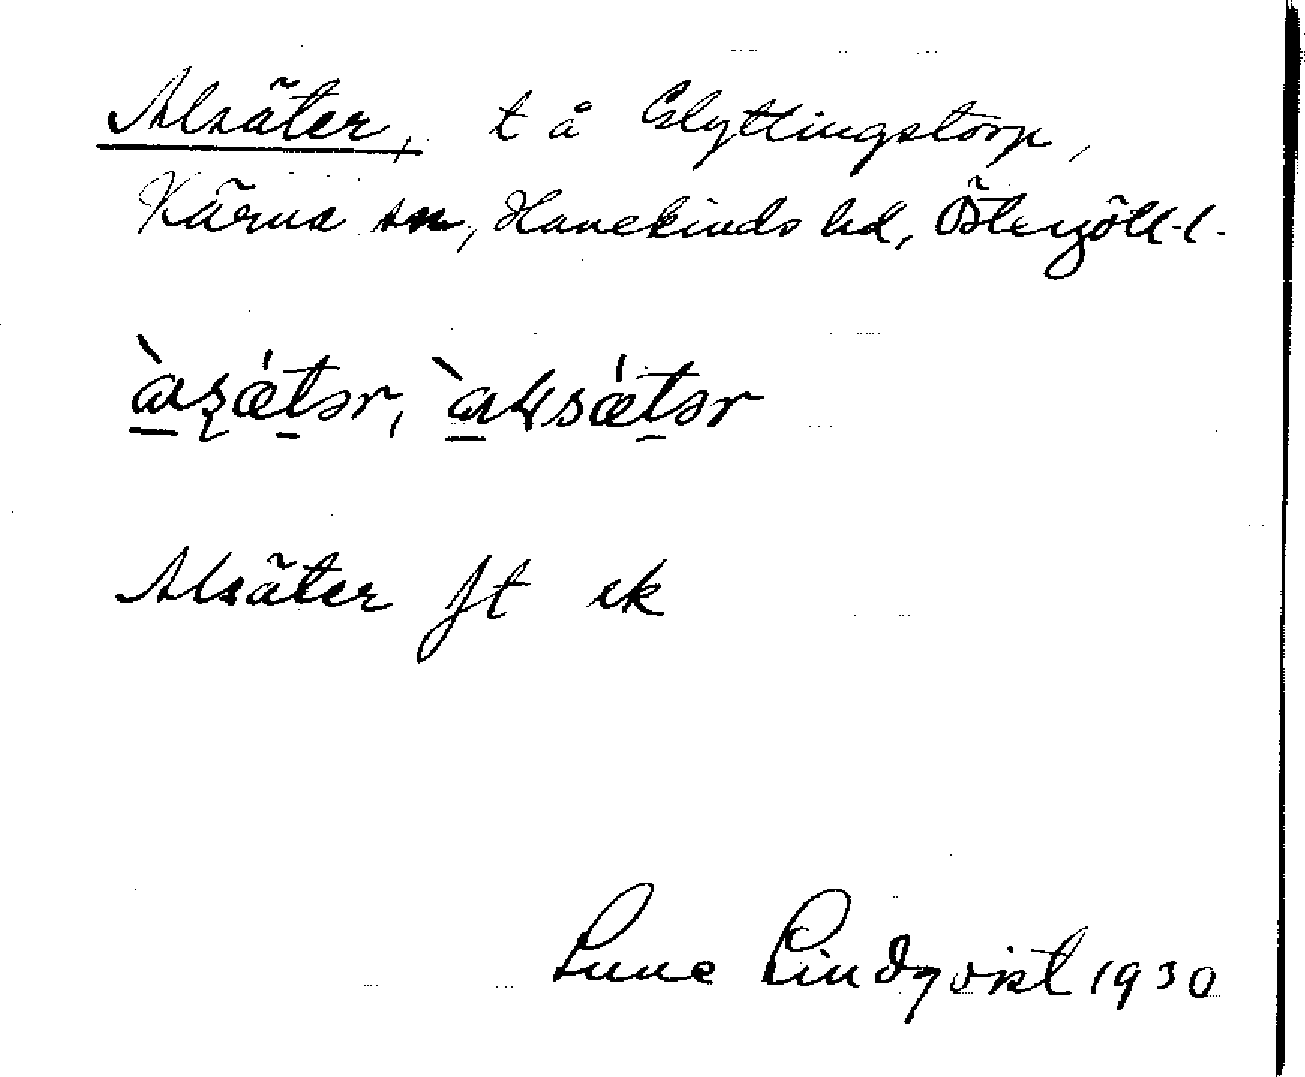 Alsäter, t å Glyttingstorp,
Kärna sn, Hanekinds hd, Östergötl. l.
Alsäter jt ek
Sune Lindqvist 1930